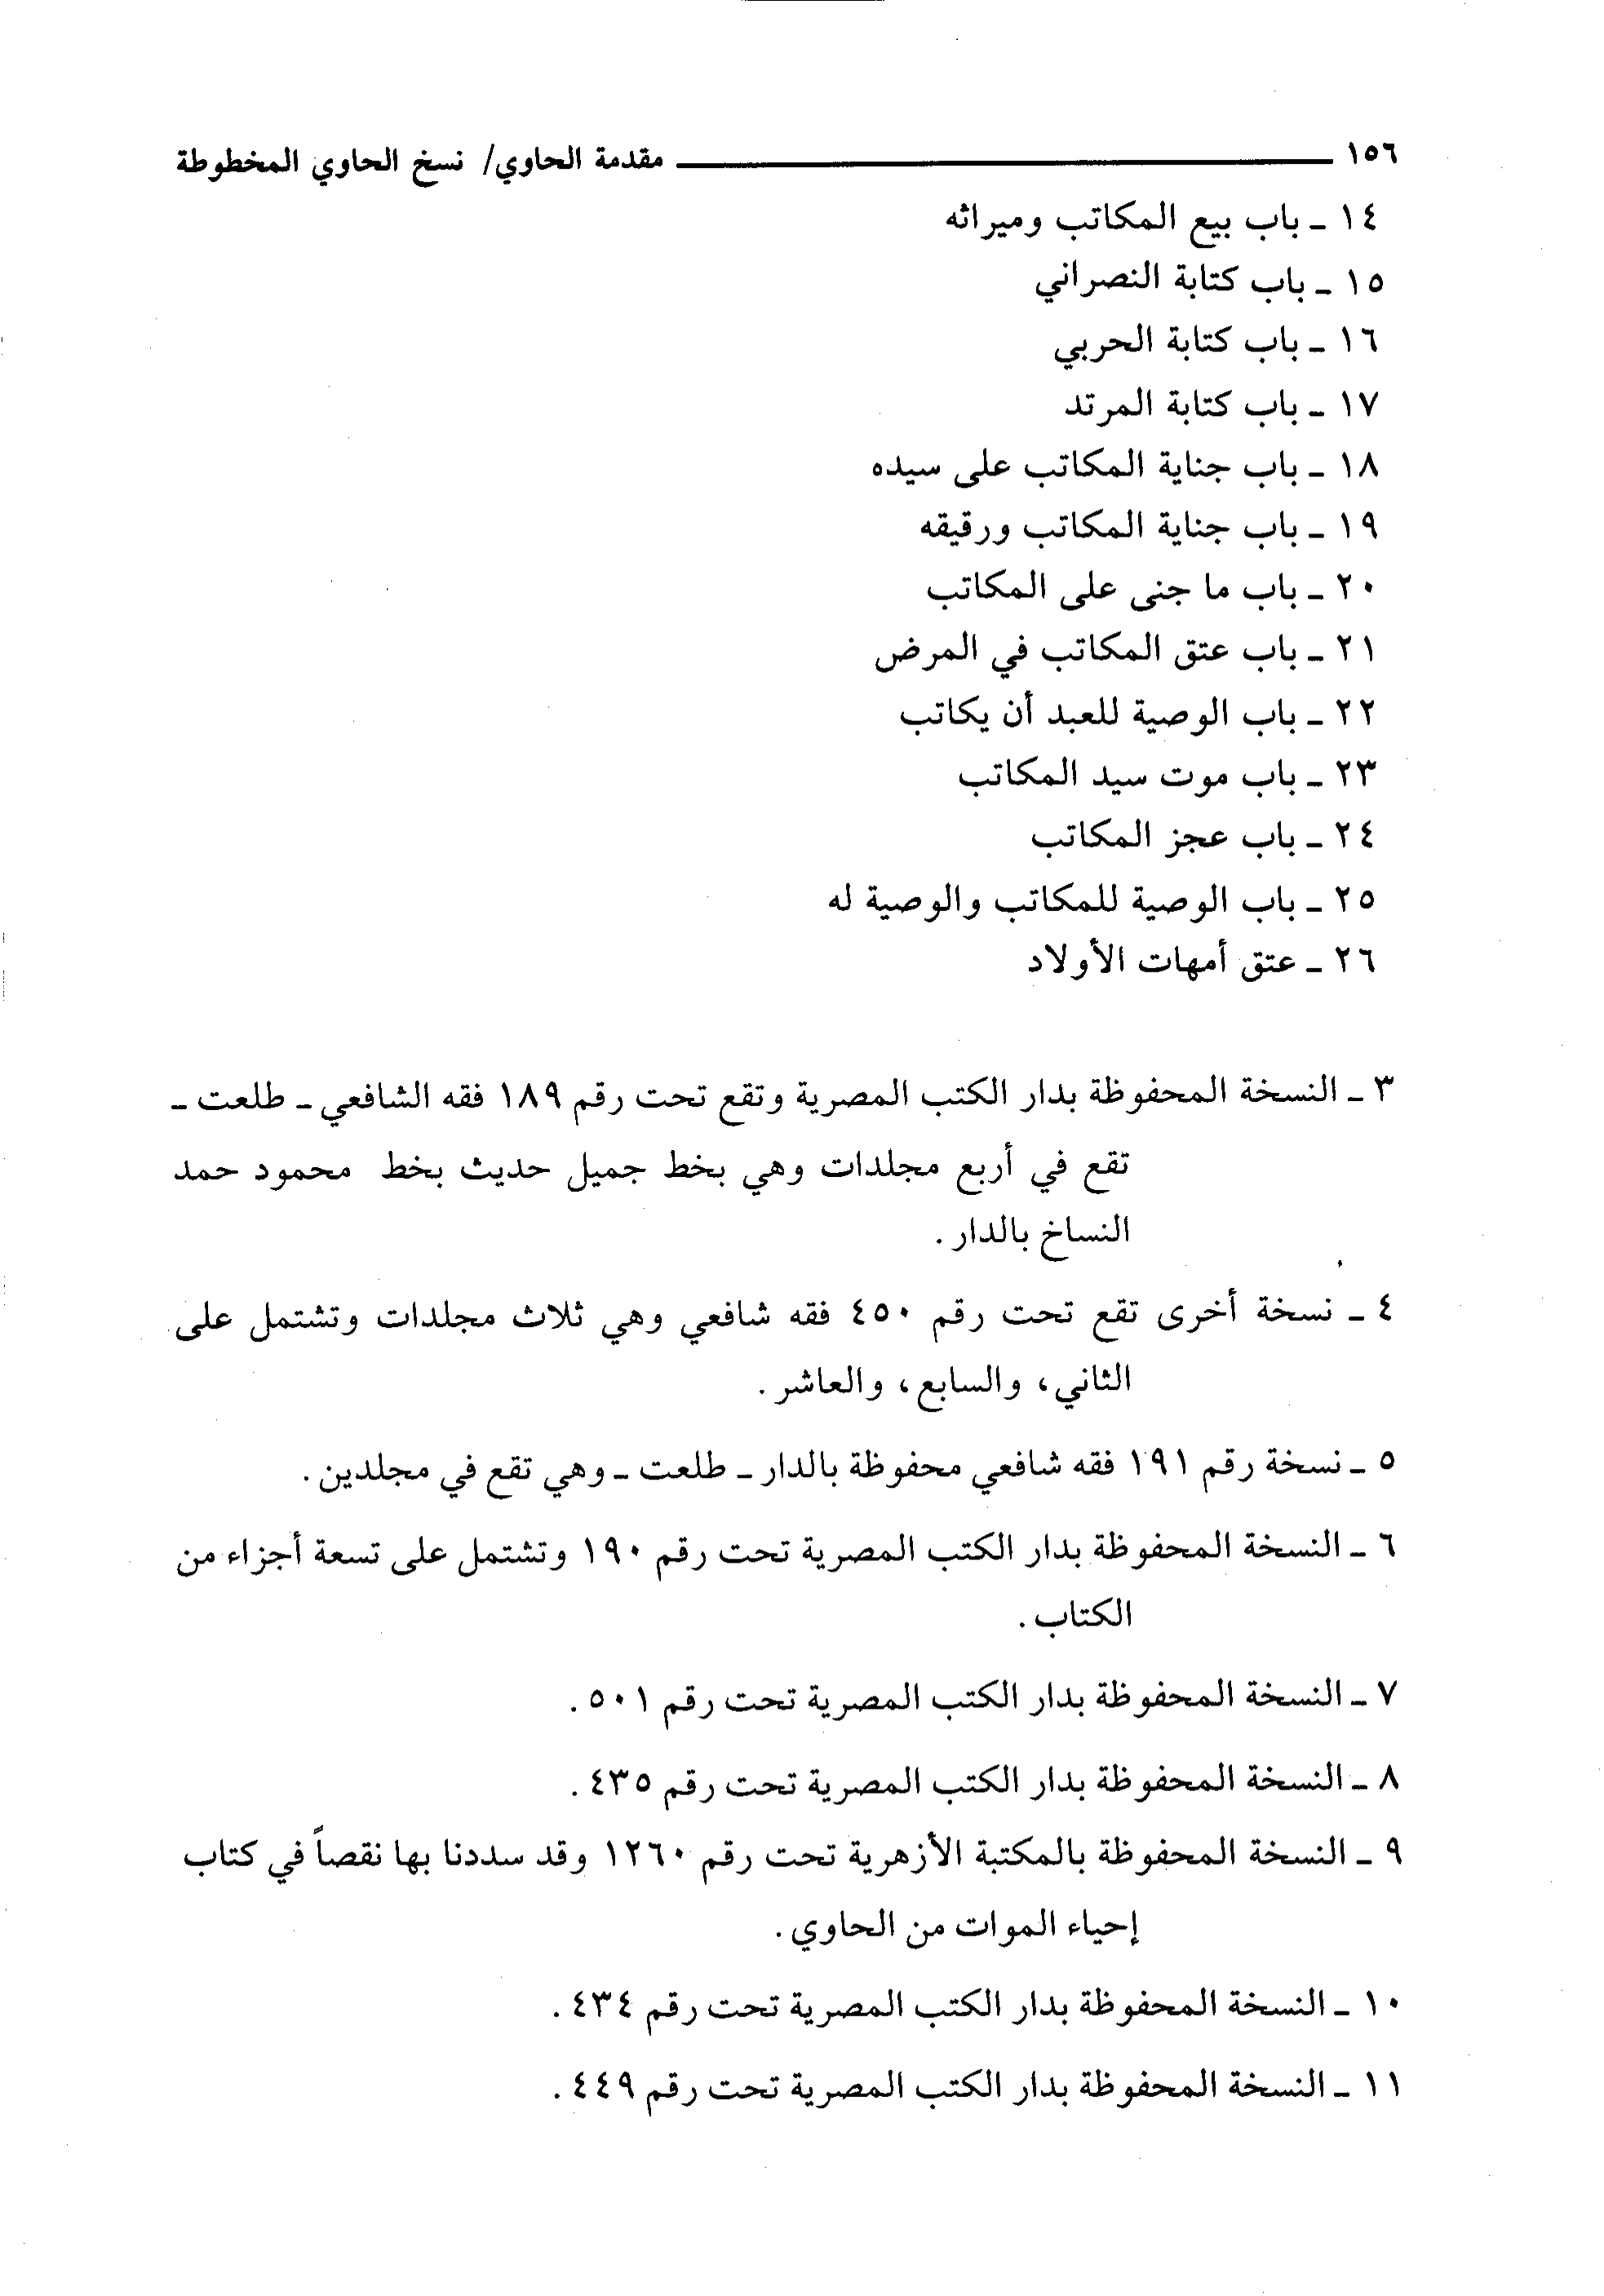 ١٥٦ مقدمة الحاوي/ نسخ الحاوي المخطوطة
١٤ ـ باب بيع المكاتب وميراثه
١٥ ـ باب كتابة النصراني
١٦ ـ باب كتابة الحربي
١٧ ـ باب كتابة المرتد
١٨ ـ باب جناية المكاتب على سيده
١٩ ـ باب جناية المكاتب ورقيقه
٢٠ ـ باب ما جنى على المكاتب
٢١ ـ باب عتق المكاتب في المرض
٢٢ ـ باب الوصية للعبد أن يكاتب
٢٣ ـ باب موت سيد المكاتب
٢٤ ـ باب عجز المكاتب
٢٥ ـ باب الوصية للمكاتب والوصية له
٢٦ ـ عتق أمهات الأولاد
٣ ـ النسخة المحفوظة بدار الكتب المصرية وتقع تحت رقم ١٨٩ فقه الشافعي ـ طلعت ـ
تقع في أربع مجلدات وهي بخط جميل حديث بخط محمود حمد
النساخ بالدار.
٤ ـ نسخة أخرى تقع تحت رقم ٤٥٠ فقه شافعي وهي ثلاث مجلدات وتشتمل على
الثاني، والسابع، والعاشر.
٥ ـ نسخة رقم ١٩١ فقه شافعي محفوظة بالدار ـ طلعت ـ وهي تقع في مجلدين.
٦ ـ النسخة المحفوظة بدار الكتب المصرية تحت رقم ١٩٠ وتشتمل على تسعة أجزاء من
الكتاب.
٧ ـ النسخة المحفوظة بدار الكتب المصرية تحت رقم ٥٠١.
٨ ـ النسخة المحفوظة بدار الكتب المصرية تحت رقم ٤٣٥.
٩ ـ النسخة المحفوظة بالمكتبة الأزهرية تحت رقم ١٢٦٠ وقد سددنا بها نقصاً في كتاب
إحياء الموات من الحاوي.
١٠ ـ النسخة المحفوظة بدار الكتب المصرية تحت رقم ٤٣٤.
١١ ـ النسخة المحفوظة بدار الكتب المصرية تحت رقم ٤٤٩.